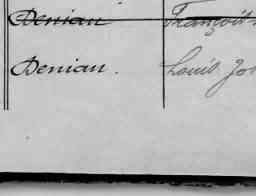 Denian François
Denian. Louis Jos